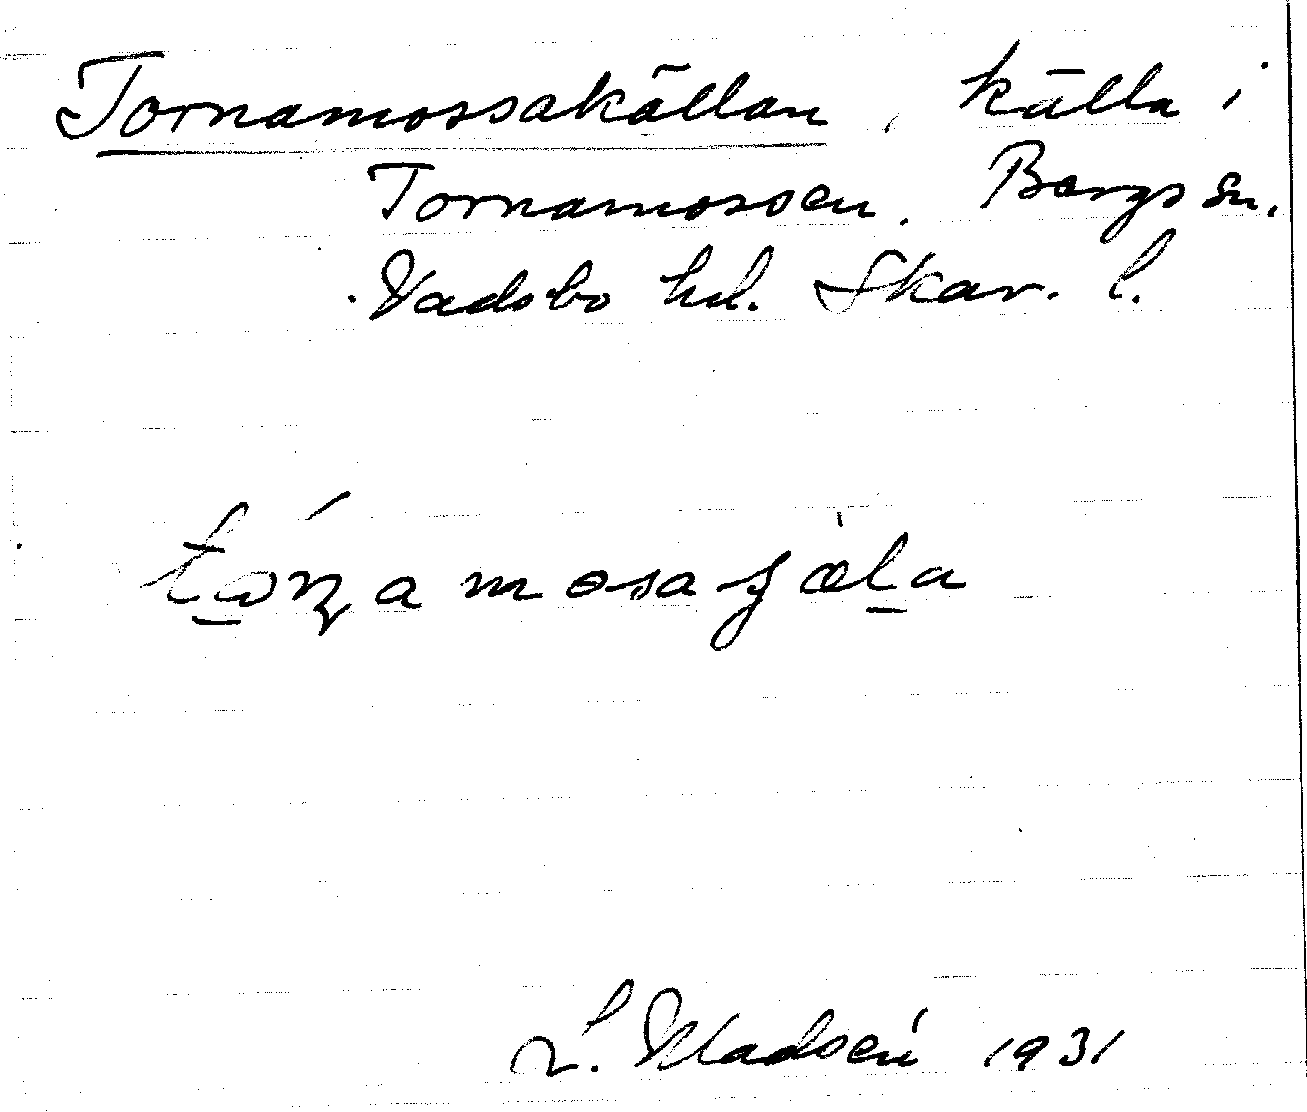 Tornamossakällan, källa i
Tornamossen. Bergs sn.
Vadsbo hd. Skar. l.
L. Madsén 1931